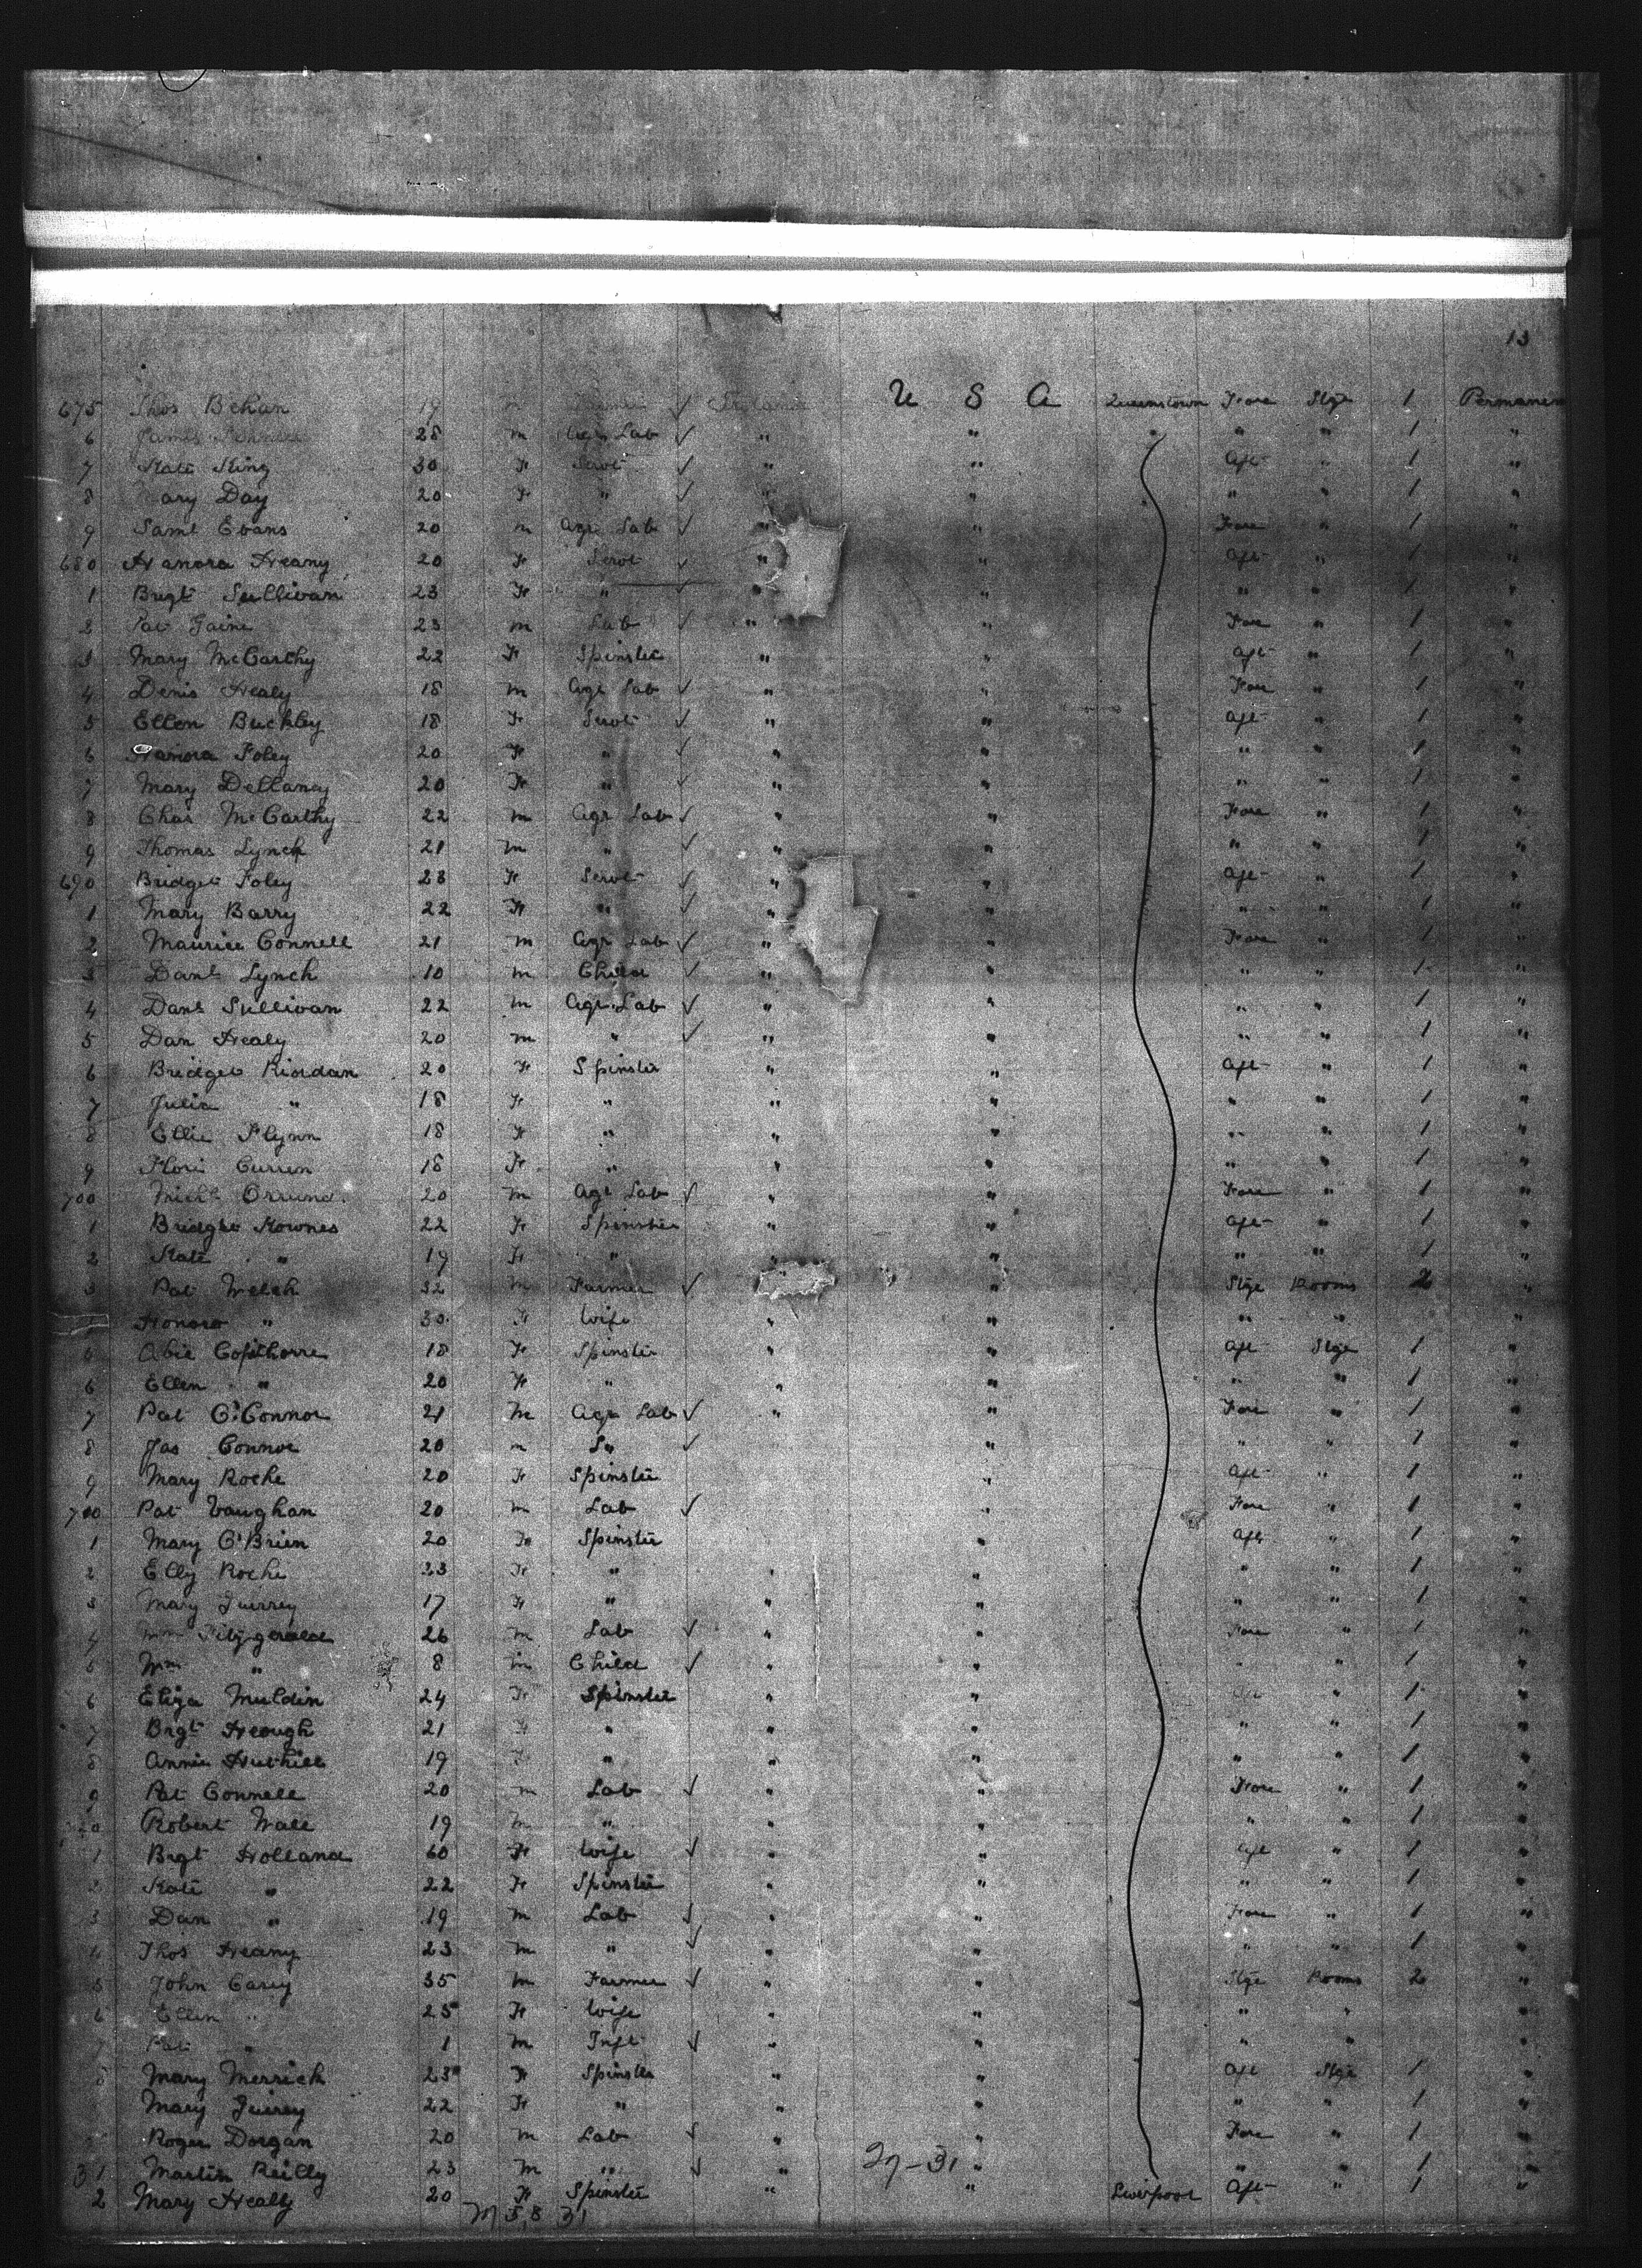 13
675 Thos Behan 19 m Farmer ✓ Ireland U S A Queenstown Fore Stge 1 Permanent
6 James 28 m Agr Lab ✓ " " " " 1 "
7 Kate King 30 F Servt ✓ " " Aft " 1 "
8 Mary Day 20 F " ✓ " " " " 1 "
9 Saml Evans 20 m Agr Lab ✓ " " Fore " 1 "
680 Hanora Heany 20 F Servt ✓ " " Aft " 1 "
1 Brigt Sullivan 23 F " ✓ " " " " 1 "
2 Pat 23 m Lab ✓ " " Fore " 1 "
3 Mary McCarthy 22 F Spinster " " Aft " 1 "
4 Denis Healy 18 m Agr Lab ✓ " " Fore " 1 "
5 Ellen Buckley 18 F Servt ✓ " " Aft " 1 "
6 Hanora Foley 20 F " ✓ " " " " 1 "
7 Mary Dellaney 20 F " ✓ " " " " 1 "
8 Chas McCarthy 22 m Agr Lab ✓ " " Fore " 1 "
9 Thomas Lynch 21 m " ✓ " " " " 1 "
690 Bridget Foley 23 F Servt ✓ " " Aft " 1 "
1 Mary Barry 22 F " ✓ " " " " 1 "
2 Maurice Connell 21 m Agr Lab ✓ " " Fore " 1 "
3 Danl Lynch 10 m Child ✓ " " " " 1 "
4 Danl Sullivan 22 m Agr Lab ✓ " " " " 1 "
5 Dan Healy 20 m " ✓ " " " " 1 "
6 Bridget Riordan 20 F Spinster " " Aft " 1 "
7 Julia " 18 F " " " " " 1 "
8 Ellie Flynn 18 F " " " " " 1 "
9 Curren 18 F " " " " " 1 "
700 Michl 20 m Agr Lab ✓ " " Fore " 1 "
1 Bridget Kownes 22 F Spinster " " Aft " 1 "
2 Kate " 19 F " " " " " 1 "
3 Pat Welsh 32 m Farmer ✓ " Stge Rooms 2 "
Honora " 30 F Wife " " " " "
Abie Copithorre 18 F Spinster " " Aft Stge 1 "
6 Ellen " 20 F " " " " " 1 "
7 Pat O'Connor 21 m Agr Lab ✓ " " Fore " 1 "
8 Jas Connor 20 m L" ✓ " " " 1 "
9 Mary Roche 20 F Spinster " Aft " 1 "
700 Pat Vaughan 20 m Lab ✓ " Fore " 1 "
1 Mary O'Brien 20 F Spinster " Aft " 1 "
2 Elly Roche 23 F " " " " " 1 "
3 Mary 17 F " " " " " 1 "
4 Wm Fitzgerald 26 m Lab ✓ " " Fore " 1 "
5 Wm " 8 m Child ✓ " " " " 1 "
6 Eliza Muldin 24 F Spinster " " Aft " 1 "
7 Brgt Heough 21 F " " " " " 1 "
8 Annie Huthill 19 F " " " " " 1 "
9 Pat Connell 20 m Lab ✓ " " Fore " 1 "
Robert Wall 19 m " " " " " 1 "
1 Brgt Holland 60 F Wife ✓ " " Aft " 1 "
2 Kate " 22 F Spinster " " " " 1 "
3 Dan " 19 m Lab ✓ " " Fore " 1 "
4 Thos Heany 23 m " ✓ " " " " 1 "
5 John Carey 35 m Farmer ✓ " " Stge Rooms 2 "
6 Ellen " 25 F Wife " " " " "
7 Pat " 1 m Inft ✓ " " " " "
8 Mary Merrick 23 F Spinster " " Aft Stge 1 "
Mary 22 F " " " " " 1 "
Roger Dorgan 20 m Lab ✓ " " Fore " 1 "
31 Martin Reilly 23 m " ✓ " 29-31 " " " 1 "
2 Mary Heally 20 F Spinster " " Liverpool Aft " 1 "
M 5,8 31